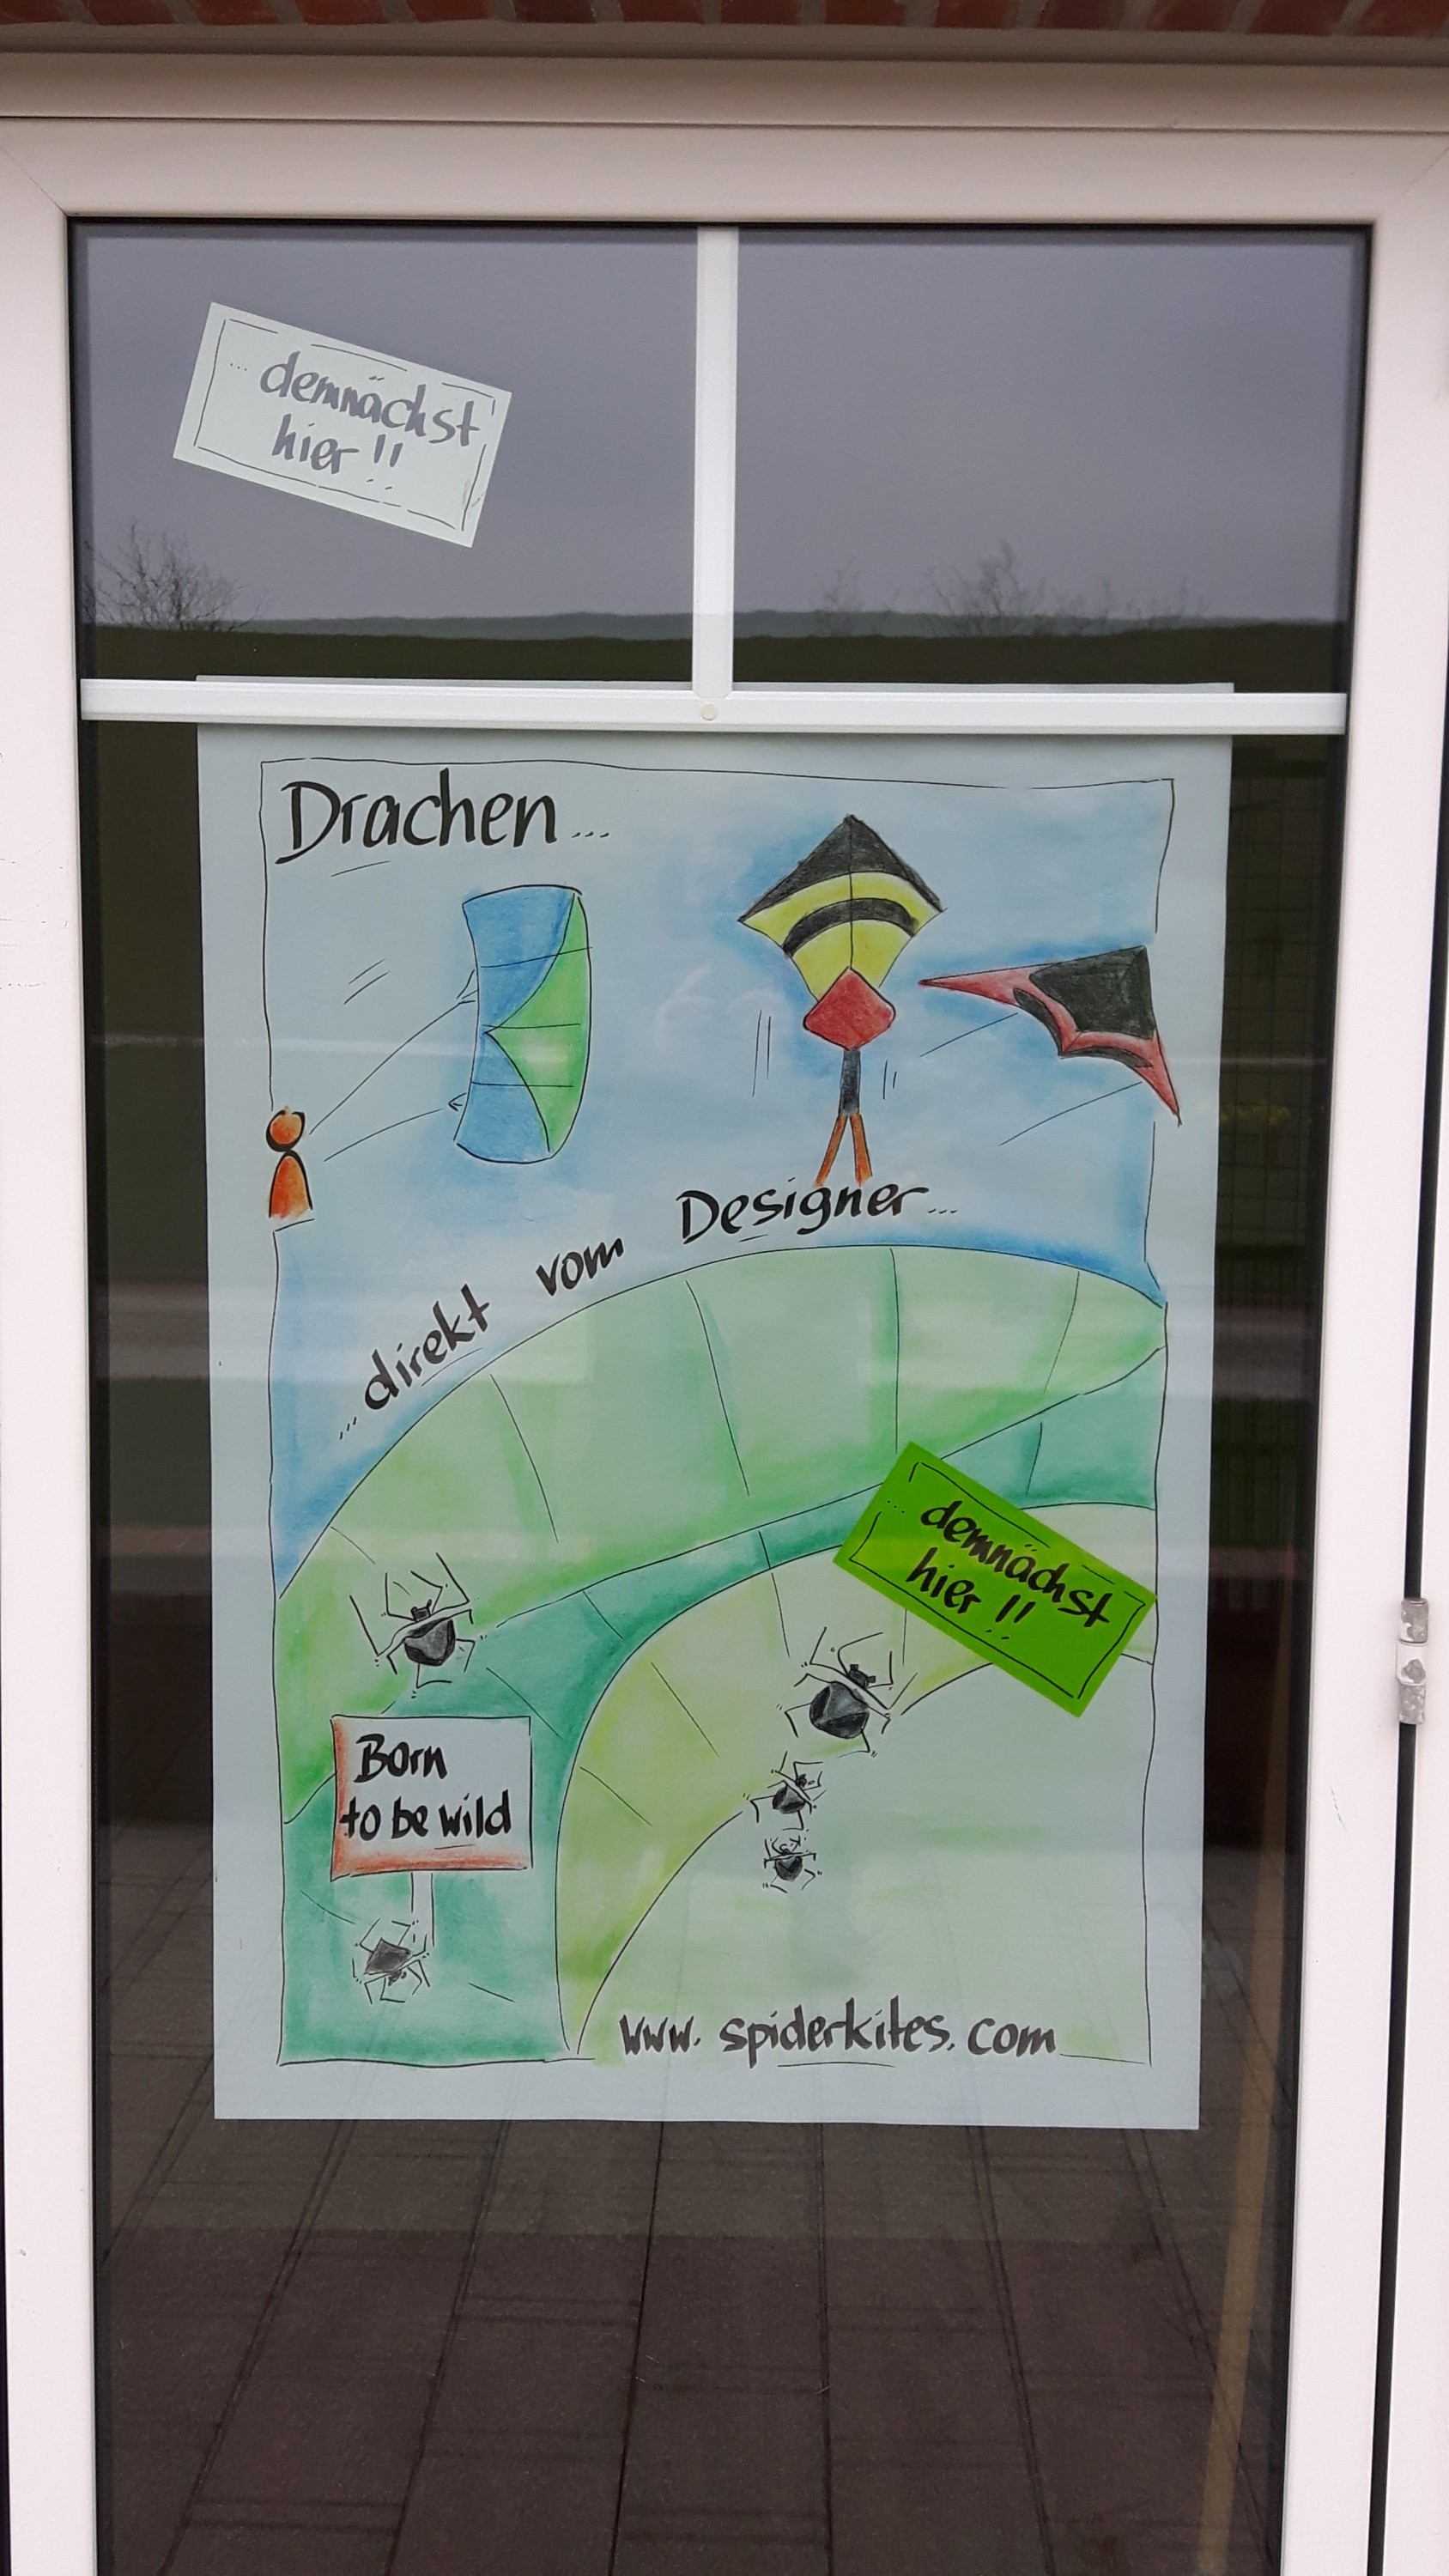 ... demnächst
hier!!
Drachen...
...direkt vom Designer...
... demnächst
hier !!
Born
to be wild
www.spiderkites.com